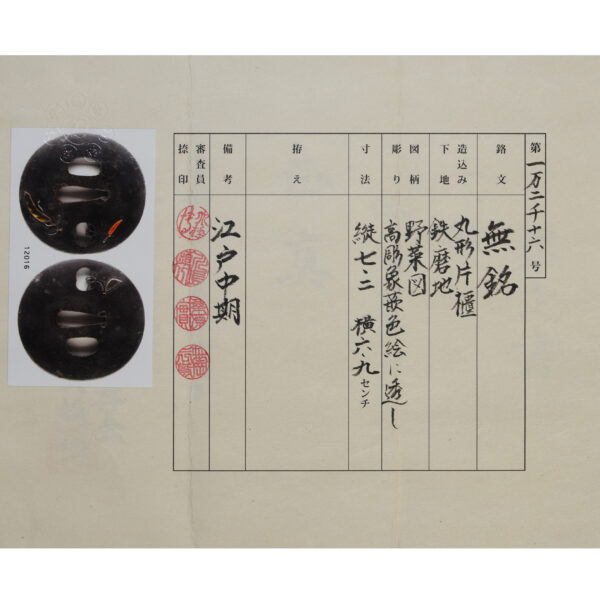 第一万二千十六号
銘文
無銘
造込み
丸形片櫃
下地
鉄磨地
図柄
野菜図
彫り
高彫象嵌色絵に透し
寸法
縦七・二 横六・九センチ
拵え
備考
江戸中期
審査員
捺印
12016